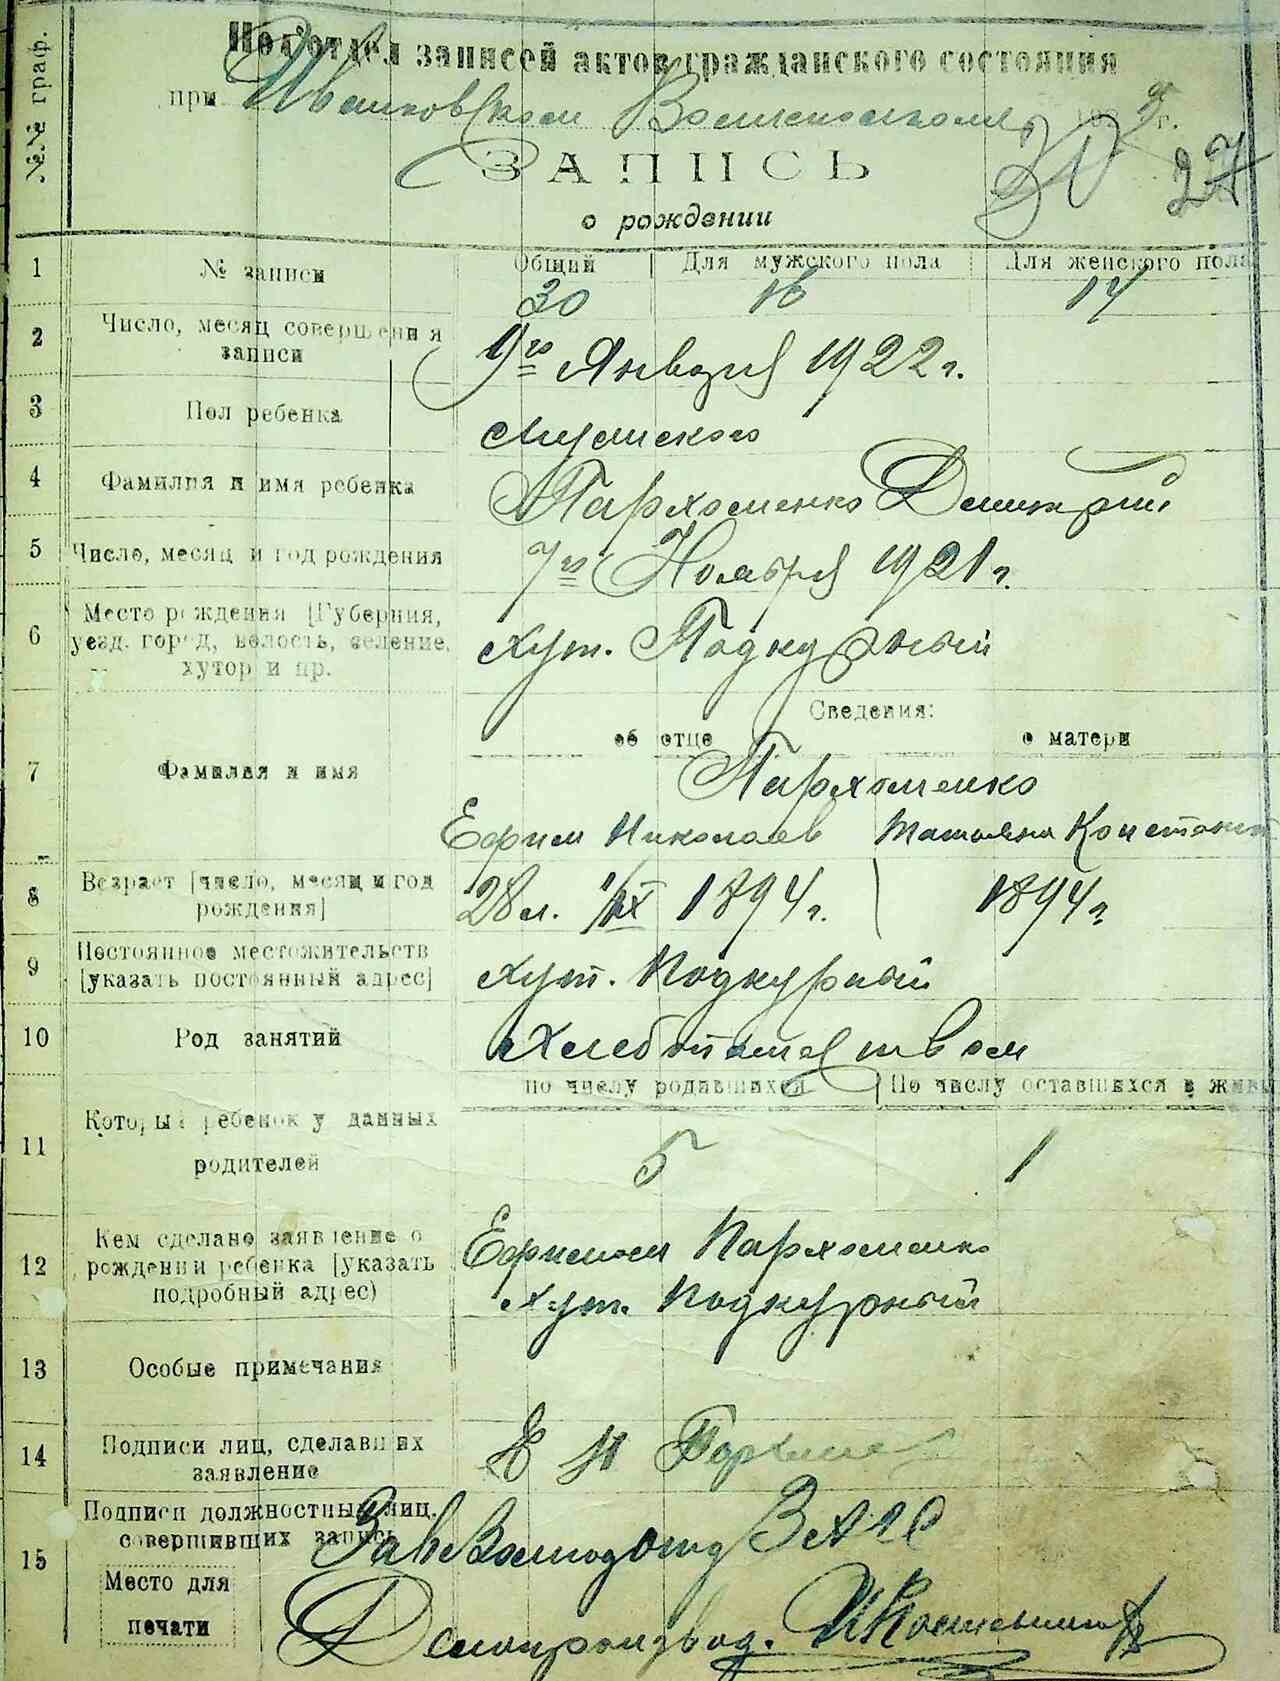 №№ граф.
Подотдел записей актов гражданского состояния
при Ивановском Волисполкоме г.
30 27
ЗАПИСЬ
о рождении
1 № записи Общий Для мужского пола Для женского пола
30 16 14
2 Число, месяц совершения записи 9го Января 1922 г.
3 Пол ребенка мужского
4 Фамилия и имя ребенка Пархоменко Дмитрий
5 Число, месяц и год рождения 7го Ноября 1921 г.
6 Место рождения [Губерния,
уезд. город, волость, селение,
хутор и пр.
хут. Подкурный
Сведения:
об отце о матери
7 Фамилия и имя Пархоменко
Ефим Николаев Татьяна Констант
8 Возраст [число, месяц и год
рождения]
28 л. 1/IX 1894 г. 1894 г.
9 Постоянное местожительств
[указать постоянный адрес]
хут. Подкурный
10 Род занятий Хлебопашеством
по числу родившихся По числу оставшихся в живы
11 Который ребенок у данных
родителей
5 1
12 Кем сделано заявление о
рождении ребенка [указать
подробный адрес)
Ефимом Пархоменко
хут. Подкурный
13 Особые примечания
14 Подписи лиц, сделавших
заявление
Е Н Пархоме
15 Подписи должностных лиц,
совершивших запись
Зав Волподотд ЗАГС
Место для
печати
Делопроизвод.